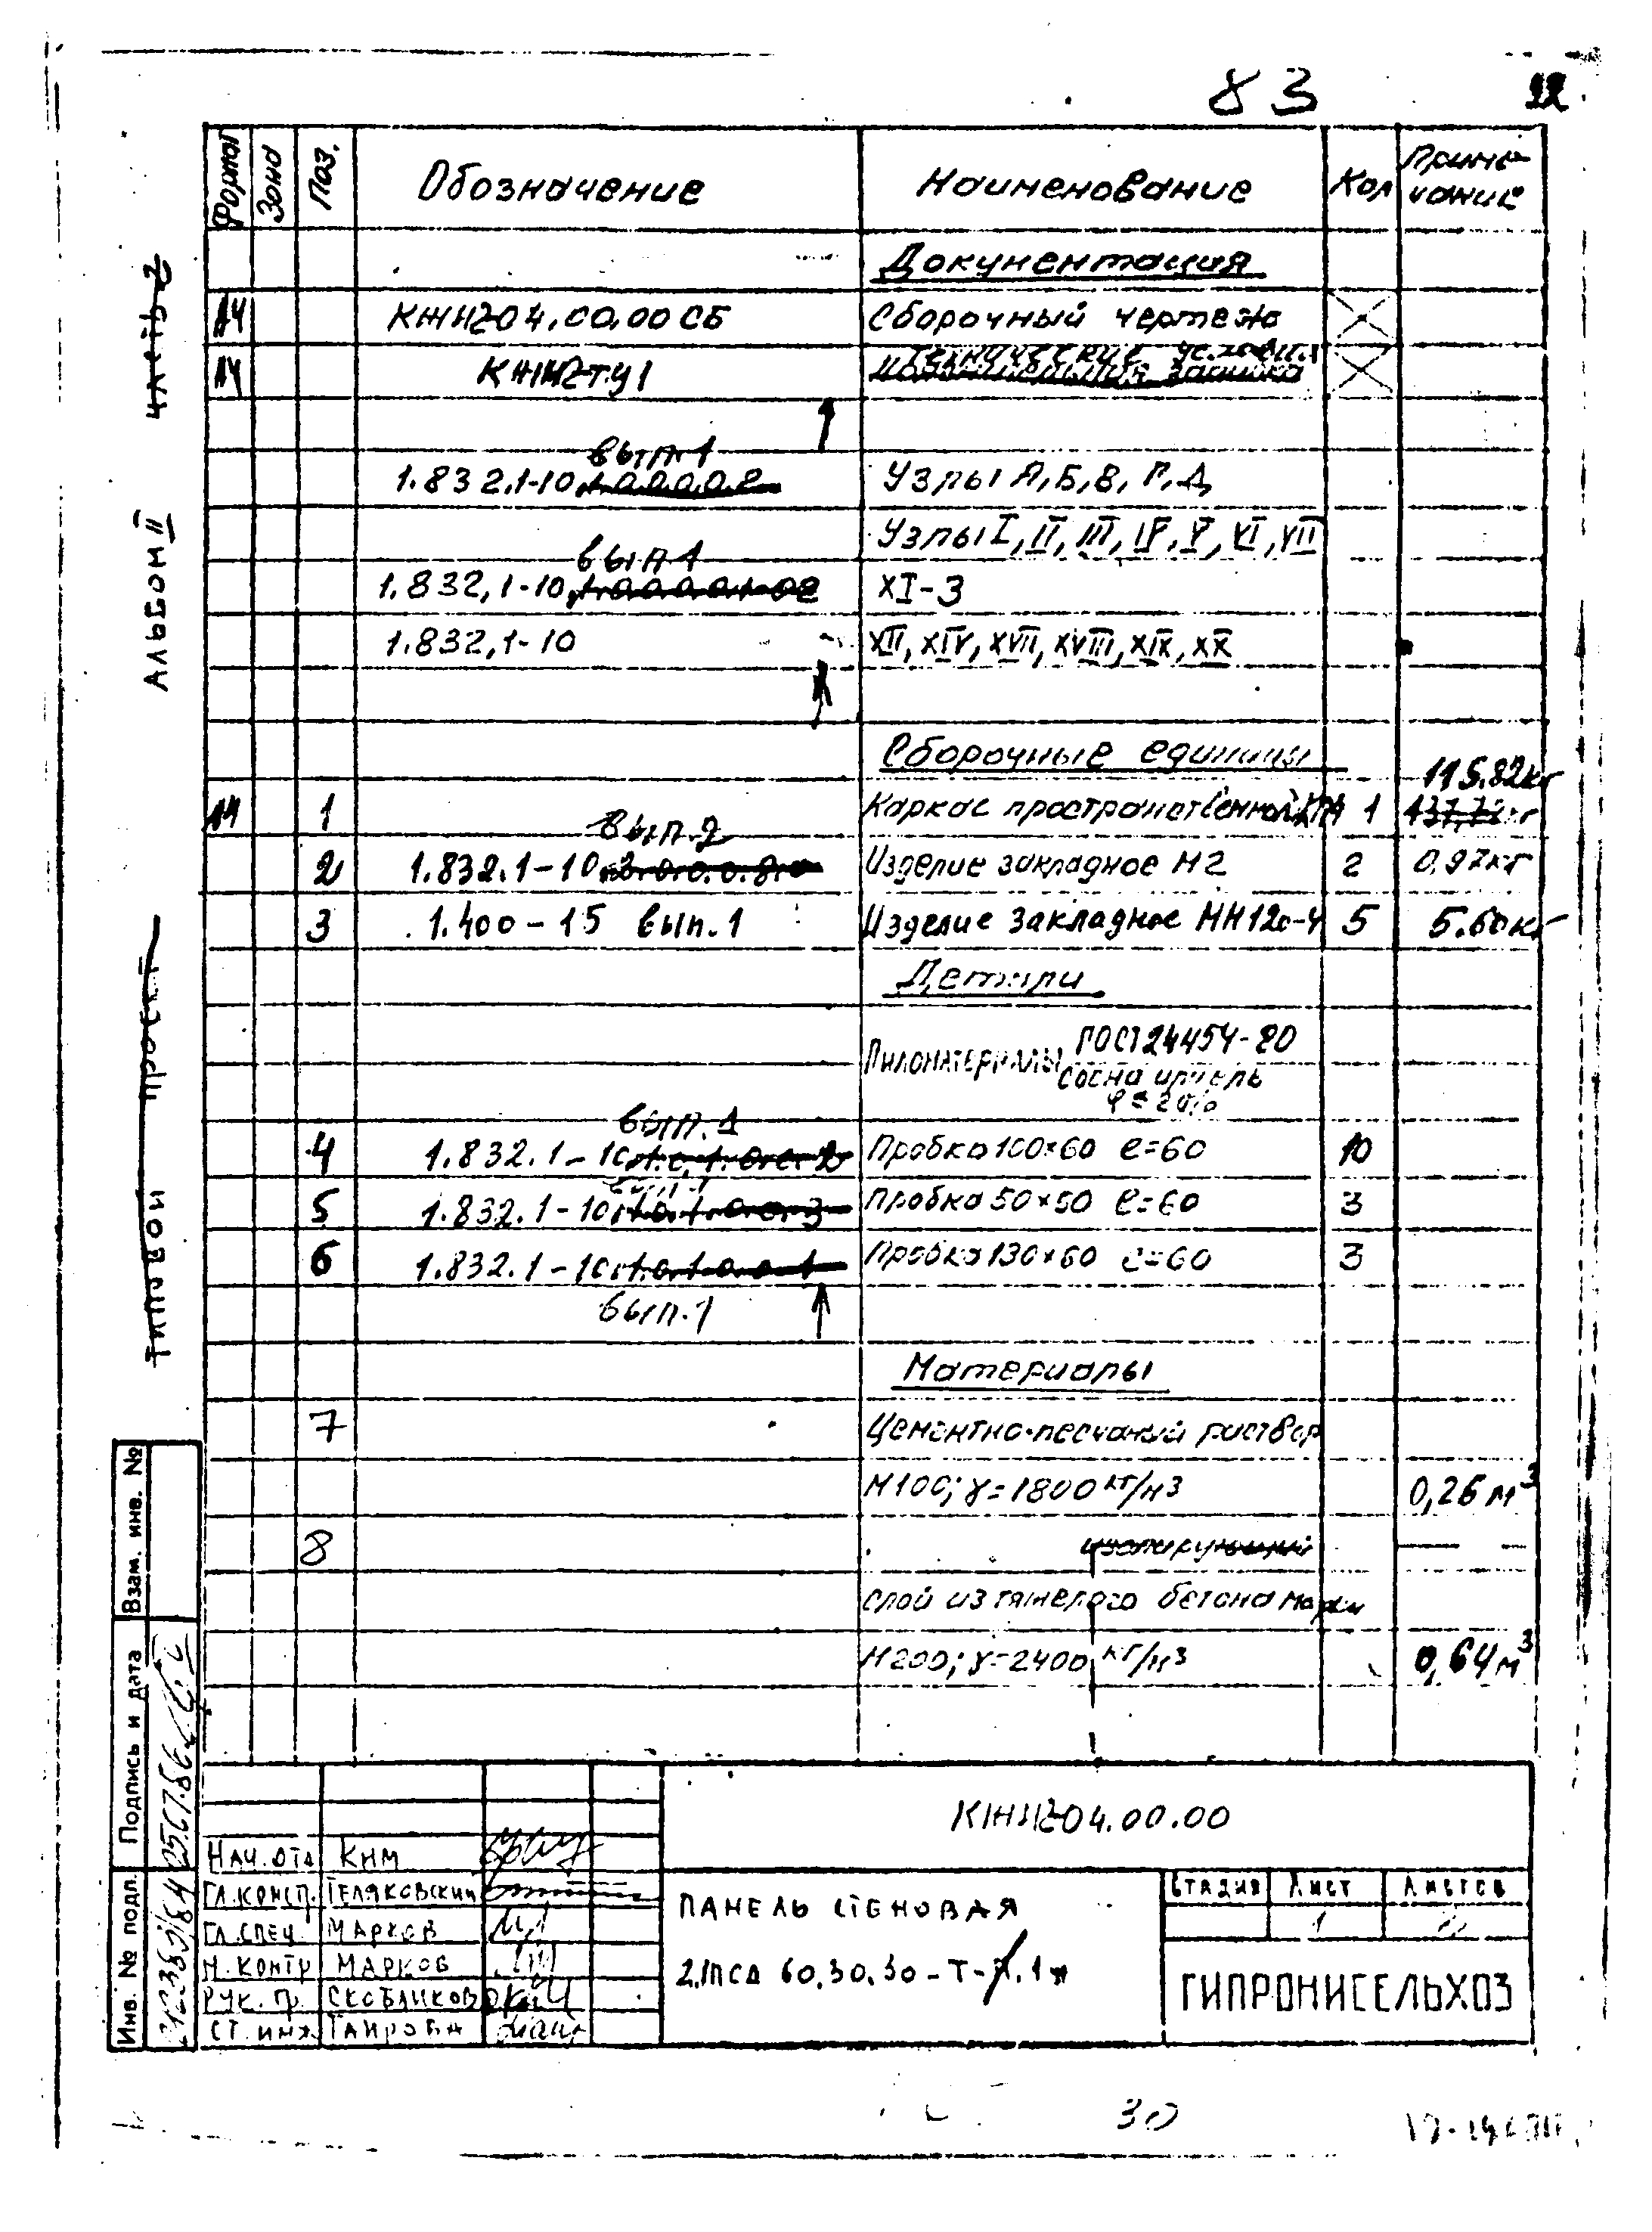 83
22
Формат Зона Поз. Обозначение Наименование Кол Примечание
Документация
А4 КЖИ204.00.00 СБ Сборочный чертеж
А4 КЖИ2ТУ1 Технические условия
вып.1
1.832.1-10 Узлы А, Б, В, Г, Д
Узлы I, II, III, IV, V, VI, VII
вып 1
1.832,1-10 XI-3
1.832,1-10 XII, XIV, XVII, XVIII, XIX, XX
Сборочные единицы
115.82кг
А4 1 Каркас пространственный 1
Вып.2
2 1.832.1-10 Изделие закладное М2 2 0.97кг
3 1.400-15 вып.1 Изделие закладное МН120-4 5 5.60кг
Детали
Пиломатериалы ГОСТ 24454-80
сосна
φ=20%
вып.1
4 1.832.1-10 Пробка 100×60 е=60 10
5 1.832.1-10 Пробка 50×50 е=60 3
6 1.832.1-10 Пробка 130×60 е=60 3
вып.1
Материалы
7 Цементно-песчаный раствор
М100; γ=1800 кг/м3 0,26 м3
8 изолирующий
слой из тяжелого бетона марки
М200; γ=2400 кг/м3 0,64м3
КЖИ204.00.00
Нач.отд Ким
Гл.консп. Теляковский
Гл.спец. Марков
Н.контр Марков
Рук. гр. Скобликов
Ст. инж. Таирова
Панель стеновая
2.1ПСД 60.30.30-Т-
Стадия Лист Листов
1
ГИПРОНИСЕЛЬХОЗ
Типовой проект
Альбом II
часть 2
Взам. инв. №
Подпись и дата
Инв. № подл.
30